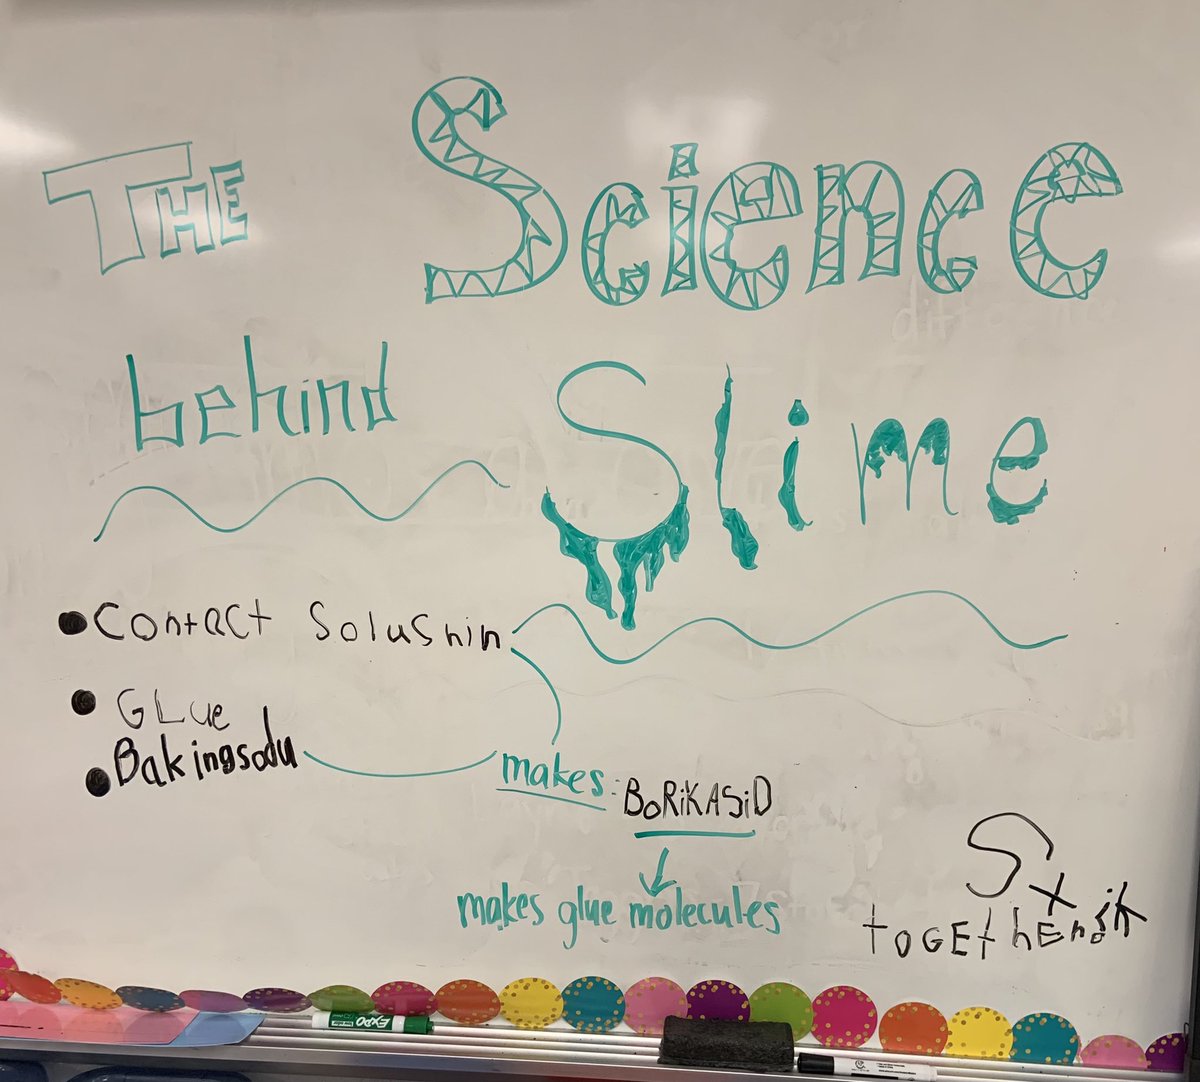 THE Science
behind Slime
• Contact Solushin
• GLue
• Bakingsodu
makes: BoRiKASiD
makes glue molecules
togethe
EXPO